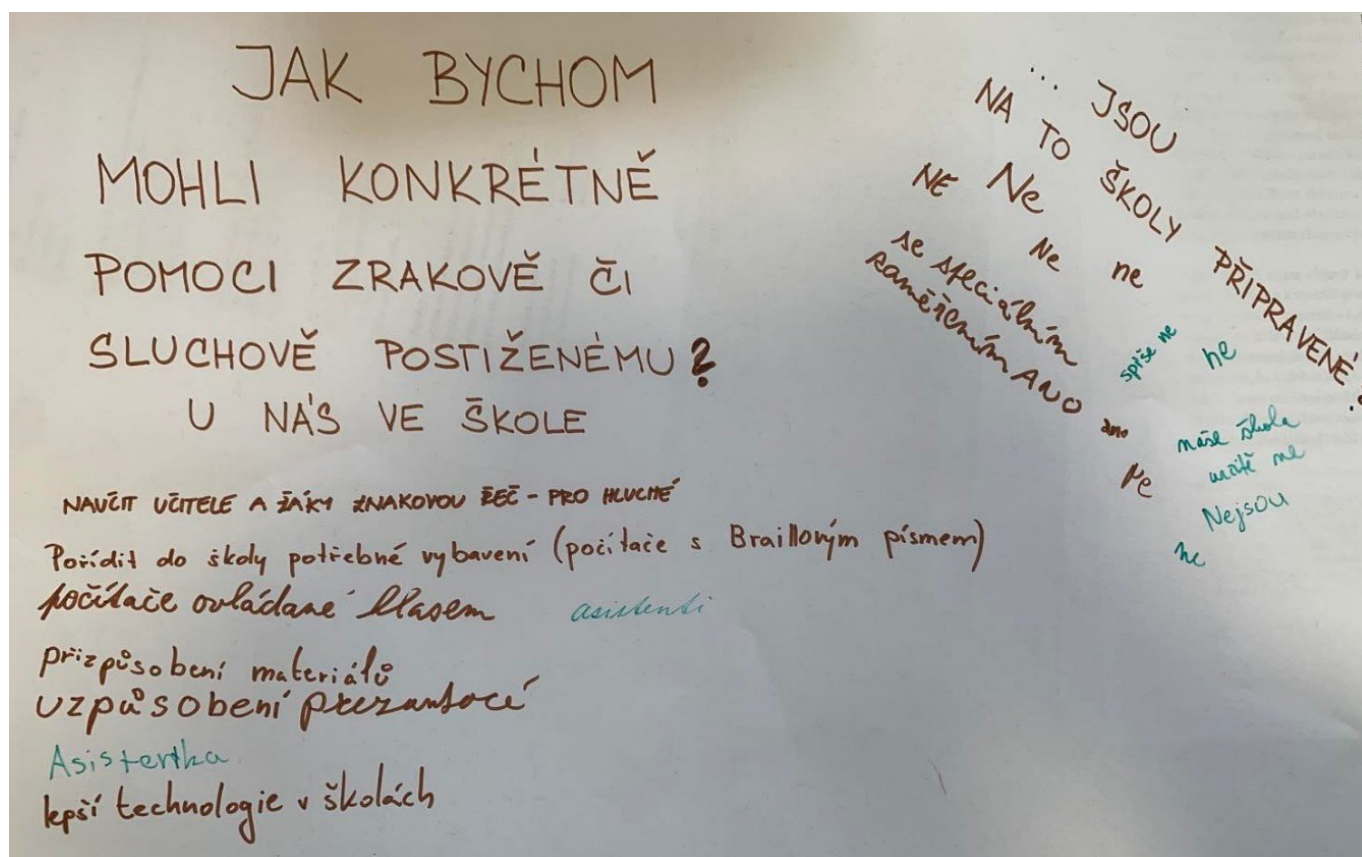 JAK BYCHOM
MOHLI KONKRÉTNĚ
POMOCI ZRAKOVĚ ČI
SLUCHOVĚ POSTIŽENÉMU?
U NÁS VE ŠKOLE
NAUČIT UČITELE A ŽÁKY ZNAKOVOU ŘEČ - PRO HLUCHÉ
Pořídit do školy potřebné vybavení (počítače s Braillovým písmem)
počítače ovládané hlasem
asistenti
přizpůsobení materiálů
uzpůsobení prezantací
Asistentka
lepší technologie v školách
... JSOU
NA TO ŠKOLY PŘIPRAVENÉ?
NE Ne Ne ne
se speciálním
zaměřením ANO
spíše ne
ne
ano
Ne
naše škola
určitě ne
Nejsou
ne